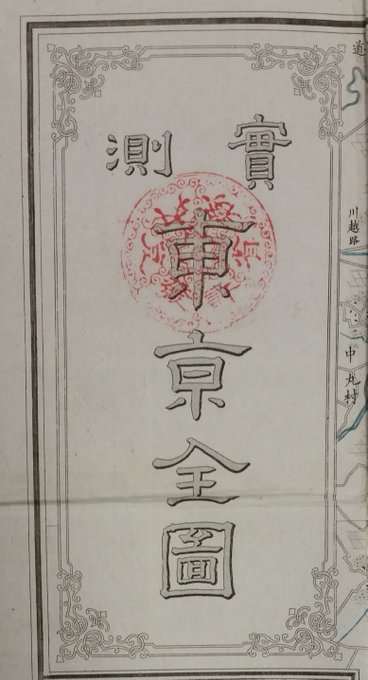 實測
東京全圖
道
川越路
中丸村